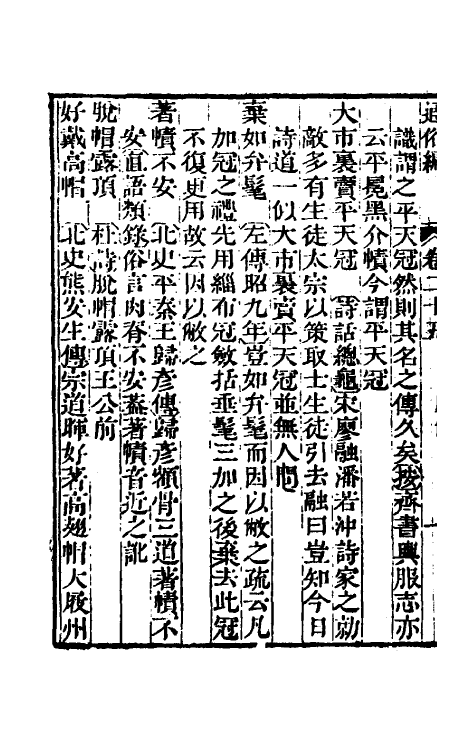 通俗編 卷二十五
識謂之平天冠然則其名之傳久矣按齊書輿服志亦
云平冕黑介幘今謂平天冠
大市裏賣平天冠 詩話總龜宋廖融潘若沖詩家之勍
敵多有生徒太宗以策取士生徒引去融曰豈知今日
詩道一似大市裏賣平天冠並無人問
棄如弁髦 左傳昭九年豈如弁髦而因以敝之疏云凡
加冠之禮先用緇布冠斂括垂髦三加之後棄去此冠
不復更用故云因以敝之
著幘不安 北史平秦王歸彥傳歸彥額骨三道著幘不
安直語類錄俗言肉脊不安蓋著幘音近之訛
脫帽露頂 杜詩脫帽露頂王公前
好戴高帽 北史熊安生傳宗道暉好著高翅帽大屐州